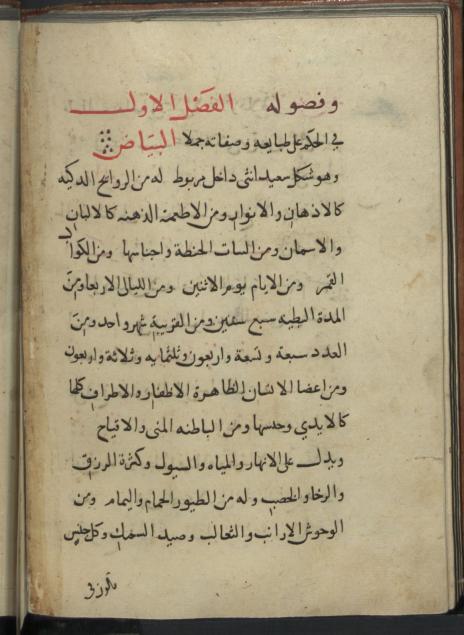 وفصوله الفصل الاول
في الحكم على طبايعه وصفاته جملا البياض
وهو شكل سعيد انثى داخل مربوط له من الروائح الدكيه
كالادهان والانوار ومن الاطعمة الدهنه كالالبان
والاسمان ومن النبات الحنطة واجناسها ومن الكواكب
القمر ومن الايام يوم الاثنين ومن الليالي الاربعا ومن
المدة البطيه سبع سنين ومن القريبة شهر واحد ومن
العدد سبعة وتسعة واربعون وثلثمايه وثلاثة واربعون
ومن اعضا الانسان الظاهرة الاظفار والاطراف كلها
كالايدي وجنسها ومن الباطنه المنى والاقياح
ويدل على الانهار والمياه والسيول وكثرة الرزق
والرخا والخصب وله من الطيور الحمام واليمام ومن
الوحوش الارانب والثعالب وصيد السمك وكل جنس